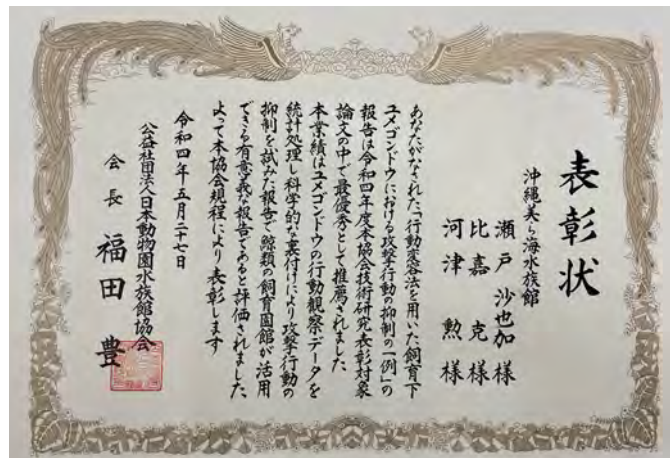 表彰状
沖縄美ら海水族館
瀬戸沙也加様
比嘉克様
河津勲様
あなたがなされた「行動変容法を用いた飼育下
ユメゴンドウにおける攻撃行動の抑制の一例」の
報告は令和四年度本協会技術研究表彰対象
論文の中で最優秀として推薦されました
本業績はユメゴンドウの行動観察データを
統計処理し科学的な裏付けにより攻撃行動の
抑制を試みた報告で鯨類の飼育園館が活用
できる有意義な報告であると評価されました
よって本協会規程により表彰します
令和四年五月二十七日
公益社団法人日本動物園水族館協会
会長 福田豊